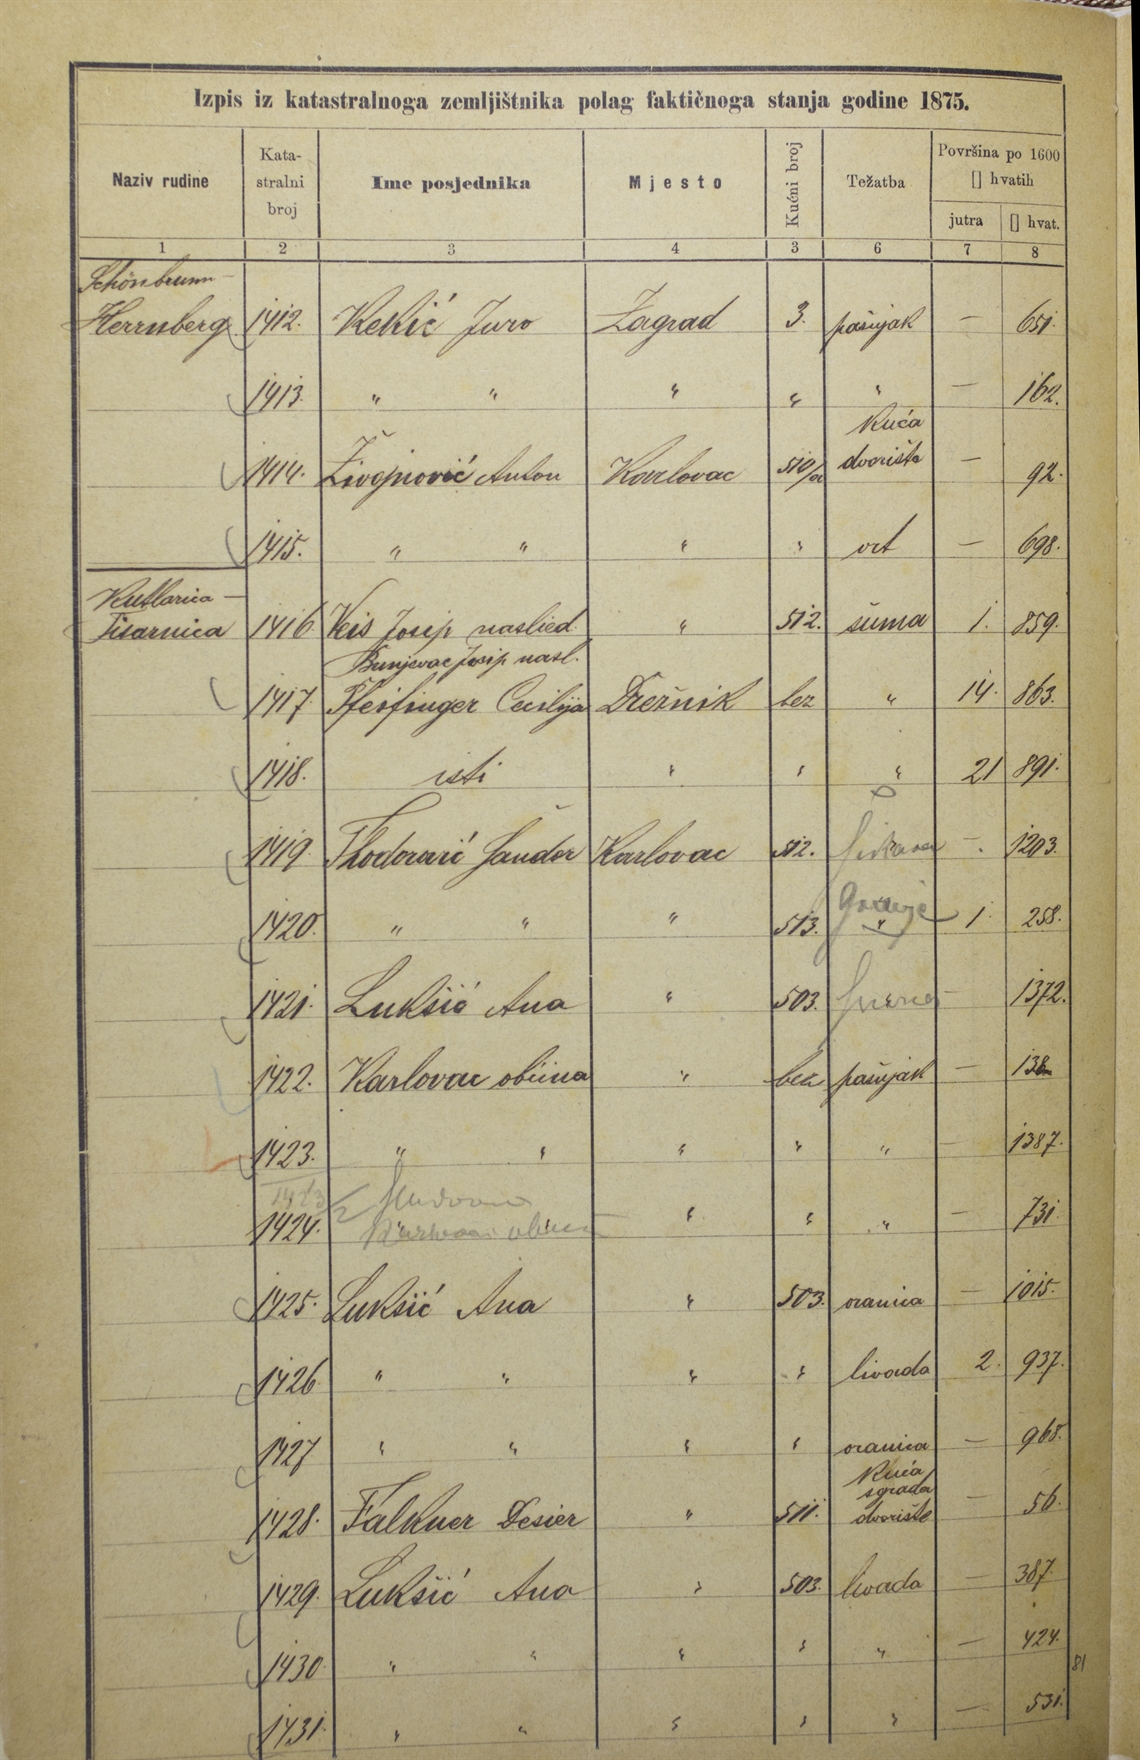 Izpis iz katastralnoga zemljištnika polag faktičnoga stanja godine 1875.
Naziv rudine | Kata-stralni broj | Ime posjednika | Mjesto | Kućni broj | Težatba | Površina po 1600 [] hvatih
jutra | [] hvat.
1 | 2 | 3 | 4 | 3 | 6 | 7 | 8
Schönbrunn -
Herrnberg 1412. Kekić Juro Zagrad 3. pašnjak — 651.
1413. " " " " " — 162.
Kuća
1414. Živojnović Anton Karlovac 510/a dvorište — 92.
1415. " " " " vrt — 698.
Kutlarica —
Tisarnica 1416 Veis Josip naslied. " 512. šuma 1. 859.
Bunjevac Josip nasl.
1417. Pfeifinger Cecilija Drežnik bez " 14. 863.
1418. isti " " " 21 891.
1419. Thodorović Šandor Karlovac 512. — 1203.
1420. " " " 513. " 1. 258.
1421. Lukšić Ana " 503. — 1372.
1422. Karlovac obćina " bez pašnjak — 138
1423. " " " " " — 1387.
1423/2
1424. obćina " " " — 731.
1425. Lukšić Ana " 503. oranica — 1015.
1426 " " " " livada 2. 937.
1427 " " " " oranica — 968.
Kuća
sgrada
1428. Falkner Desier " 511. dvorište — 56.
1429. Lukšić Ana " 503. livada — 387.
1430. " " " " " — 424.
81
1431. " " " " " — 531.